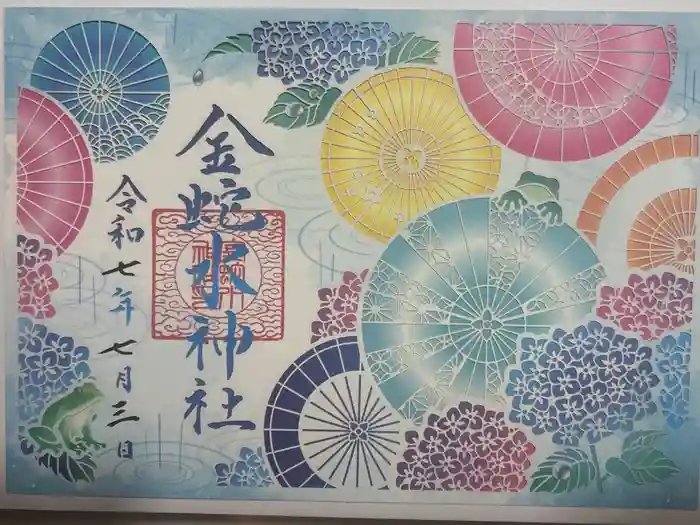 金蛇水神社
令和七年七月三日